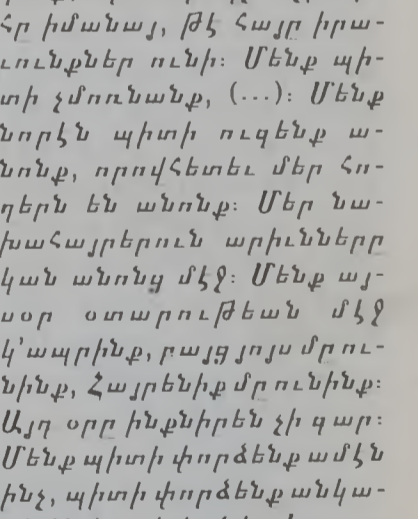 Հր իմանայ, թէ Հայը իրա-
ւունքներ ունի։ Մենք պի-
տի չմոռնանք, (...)։ Մենք
նորէն պիտի ուզենք ա-
նոնք, որովհետեւ մեր հո-
ղերն են անոնք։ Մեր նա-
խահայրերուն արիւնները
կան անոնց մէջ։ Մենք այ-
սօր օտարութեան մէջ
կ'ապրինք, բայց յոյս մը ու-
նինք, Հայրենիք մը ունինք։
Այդ օրը ինքնիրեն չի գար։
Մենք պիտի փորձենք ամէն
ինչ, պիտի փորձենք անկա-